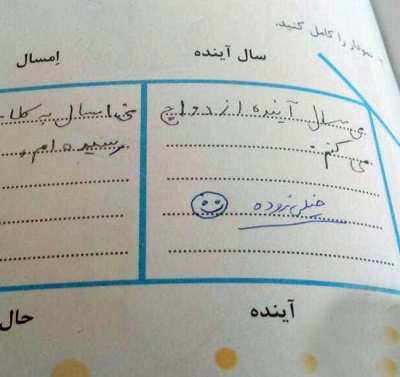 نمودار را کامل کنید.
سال آینده
اِمسال
من سال آینده ازدواج
می کنم.
خیلی زوده
من امسال به کلا
رسیده ام.
آینده
حال